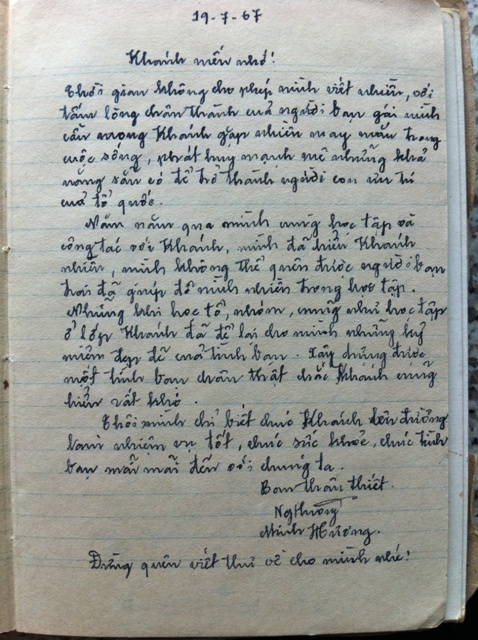 19-7-67
Khánh mến nhớ!
Thời gian không cho phép mình viết nhiều, với
tấm lòng chân thành của người bạn gái mình
cầu mong Khánh gặp nhiều may mắn trong
cuộc sống, phát huy mạnh mẽ những khả
năng sẵn có để trở thành người con ưu tú
của tổ quốc.
Năm năm qua mình cùng học tập và
công tác với Khánh, mình đã hiểu Khánh
nhiều, mình không thể quên được người bạn
trai đã giúp đỡ mình nhiều trong học tập.
Những khi học tổ, nhóm, cũng như học tập
ở lớp Khánh đã để lại cho mình những kỷ
niệm đẹp đẽ của tình bạn. Xây dựng được
một tình bạn chân thật chắc Khánh cũng
hiểu rất khó.
Thôi mình chỉ biết chúc Khánh lên đường
làm nhiệm vụ tốt, chúc sức khỏe, chúc tình
bạn mãi mãi đến với chúng ta.
Bạn thân thiết.
Minh Hương.
Đừng quên viết thư về cho mình nhé!